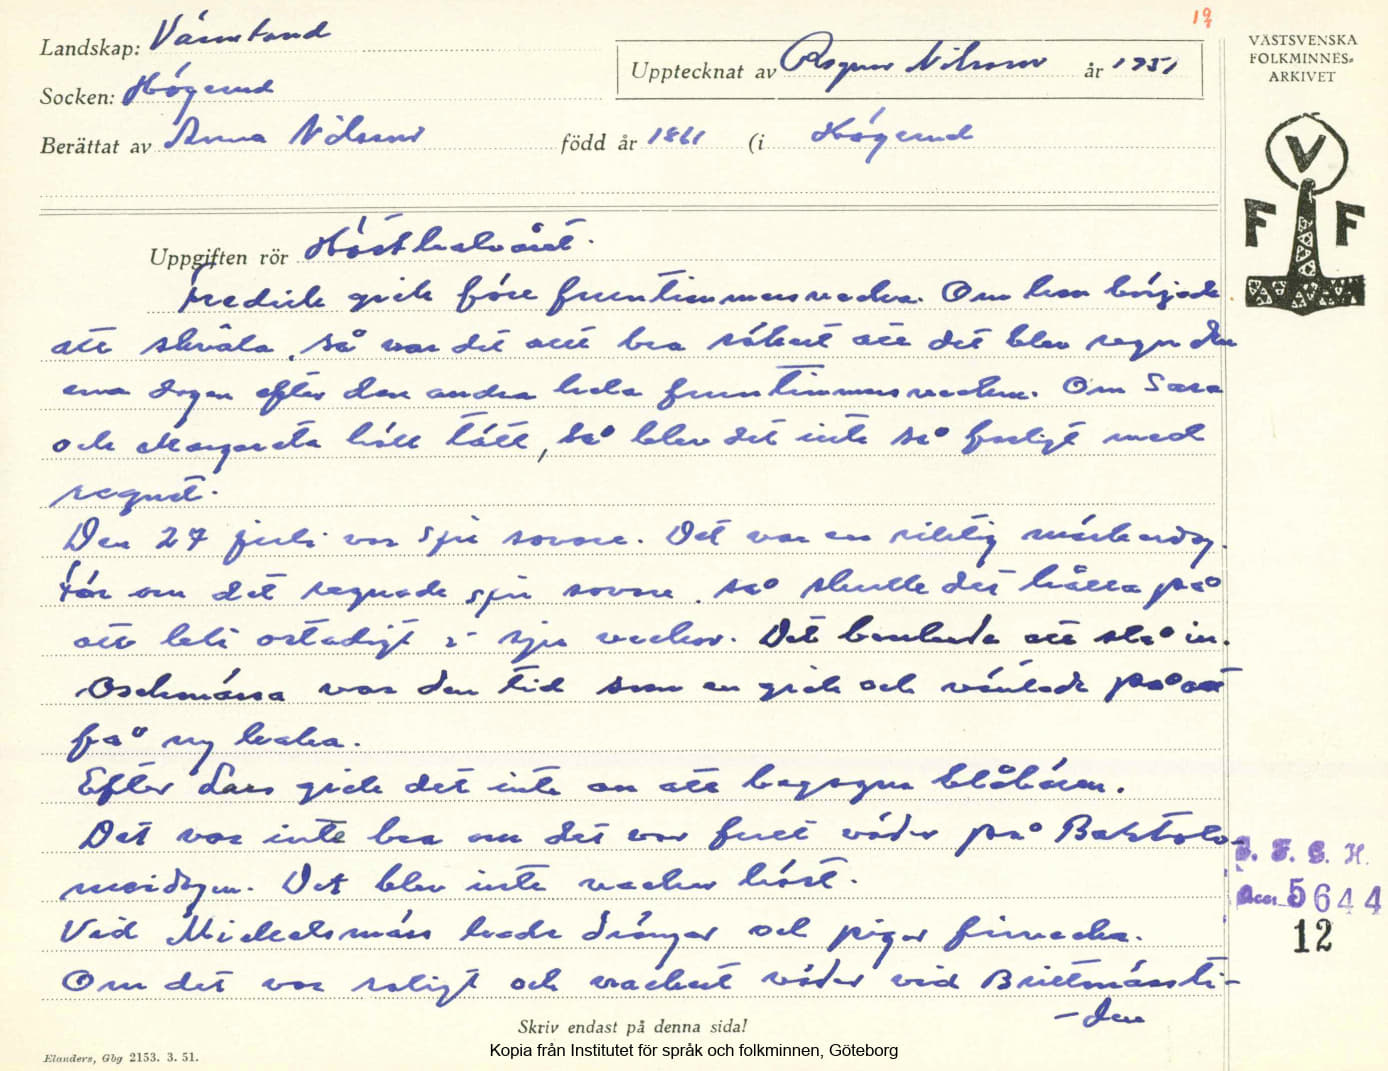 19
Landskap: Värmland
Socken: Högerud
Upptecknat av Ragnar Nilsson år 1951
Berättat av Anna Nilsson född år 1861 (i Högerud
VÄSTSVENSKA
FOLKMINNES-
ARKIVET
V
F F
Uppgiften rör Hösthalvåret.
Fredrik gick före fruntimmersveckan. Om han började
att skvala, så var det allt bra säkert att det blev regn den
ena dagen efter den andra hela fruntimmersveckan. Om Sara
och Margareta höll tätt, så blev det inte så farligt med
regnet.
Den 27 juli var sju sovare. Det var en riktig märkesdag.
För om det regnade sju sovare, så skulle det hålla på
att bli ostadigt i sju veckor. Det brukade att slå in.
Osckmässa var den tid som en gick och väntade på att
få ny kaka.
Efter Lars gick det inte an att begagna blåbären.
Det var inte bra om det var fult väder på Bartolo-
meidagen. Det blev inte vacker höst.
Vid Mickelsmäss hade drängar och pigor frivecka.
Om det var roligt och vackert väder vid Brittmässti-
-den
I. F. G. H.
Acc. 5644
12
Skriv endast på denna sida!
Elanders, Gbg 2153. 3. 51.
Kopia från Institutet för språk och folkminnen, Göteborg